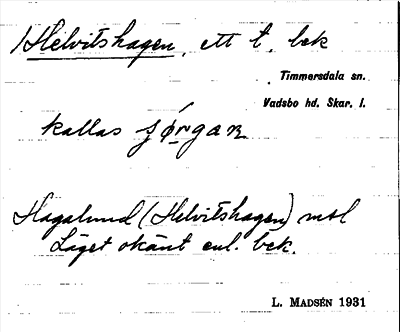 Helvitshagen, ett t. bek
Timmersdala sn.
Vadsbo hd. Skar. l.
kallas
Hagalund (Helvitshagen) mtl
Läget okänt enl. bek.
L. MADSÉN 1931